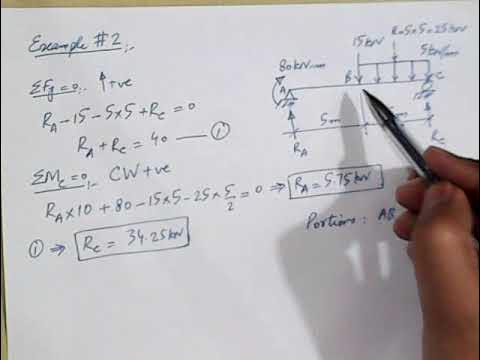 Example #2
ΣFy=0; ↑+ve
RA-15-5×5+RC=0
RA+RC=40 — ①
ΣMC=0; CW+ve
RA×10+80-15×5-25×5/2=0 ⇒ RA=5.75kN
① ⇒ RC=34.25kN
R=5×5=25kN
15kN
80kN-m
5kN/m
A
B
C
5m
RA
RC
Portions: AB